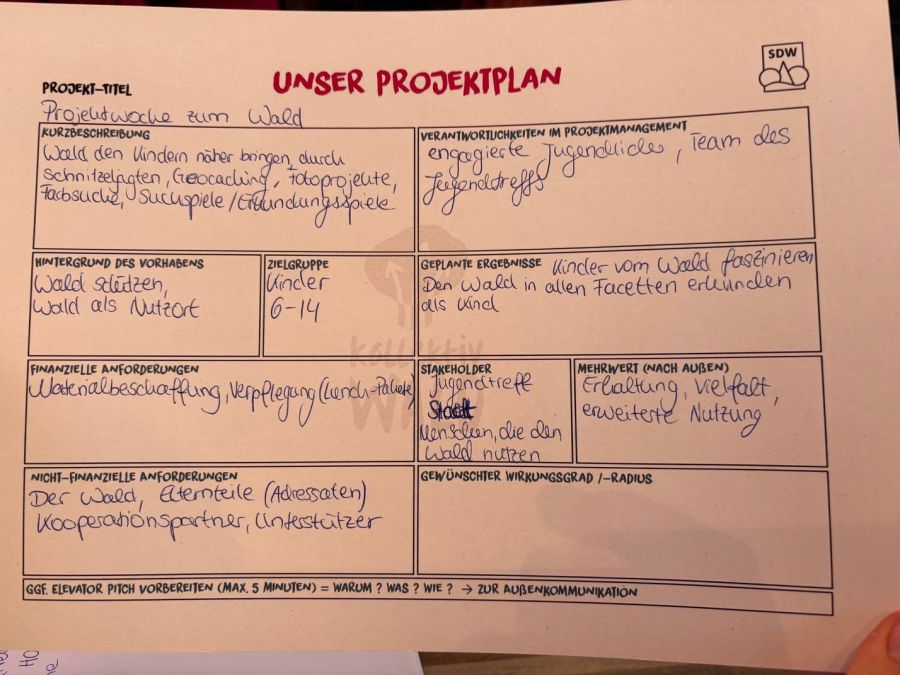 UNSER PROJEKTPLAN
SDW
PROJEKT-TITEL
Projektwoche zum Wald
KURZBESCHREIBUNG
Wald den Kindern näher bringen, durch
Schnitzeljagten, Geocaching, Fotoprojekte,
Farbsuche, Suchspiele/Erkundungsspiele
VERANTWORTLICHKEITEN IM PROJEKTMANAGEMENT
engagierte Jugendliche, Team des
Jugendtreffs
HINTERGRUND DES VORHABENS
Wald stützen,
Wald als Nutzort
ZIELGRUPPE
Kinder
6-14
GEPLANTE ERGEBNISSE Kinder vom Wald faszinieren
Den Wald in allen Facetten erkunden
als Kind
FINANZIELLE ANFORDERUNGEN
Materialbeschaffung, Verpflegung (Lunch-Pakete)
STAKEHOLDER
Jugendtreff
Stadt
Menschen, die den
Wald nutzen
MEHRWERT (NACH AUßEN)
Erhaltung, Vielfalt,
erweiterte Nutzung
NICHT-FINANZIELLE ANFORDERUNGEN
Der Wald, Elternteile (Adressaten)
Kooperationspartner, Unterstützer
GEWÜNSCHTER WIRKUNGSGRAD /-RADIUS
GGF. ELEVATOR PITCH VORBEREITEN (MAX. 5 MINUTEN) = WARUM ? WAS ? WIE ? → ZUR AUßENKOMMUNIKATION
KOLLEKTIV
WALD